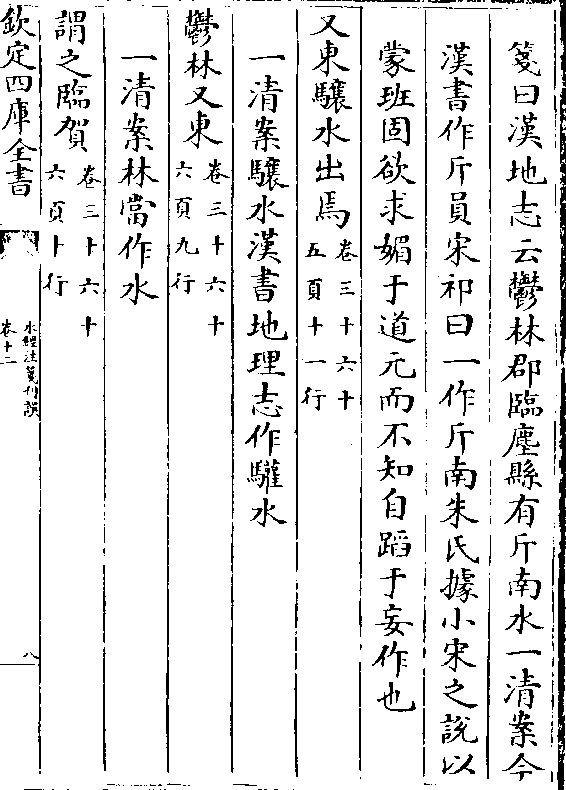 箋曰漢地志云鬱林郡臨塵縣有斤南水一清案今
漢書作斤員宋祁曰一作斤南朱氏據小宋之說以
蒙班固欲求媚于道元而不知自蹈于妄作也
又東驤水出焉卷三十六十五頁十一行
一清案驤水漢書地理志作驩水
鬱林又東卷三十六十六頁九行
一清案林當作水
謂之臨賀卷三十六十六頁十行
欽定四庫全書
水經注箋刊誤
卷十二
八